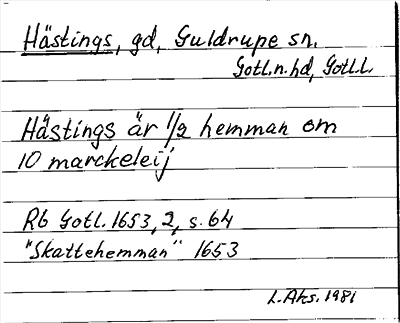 Hästings, gd, Guldrupe sn.
Gotl.n.hd, Gotl.L.
Hästings är 1/2 hemman om
10 marckeleij
Rb Gotl. 1653, 2, s. 64
"Skattehemman" 1653
L. Aks. 1981